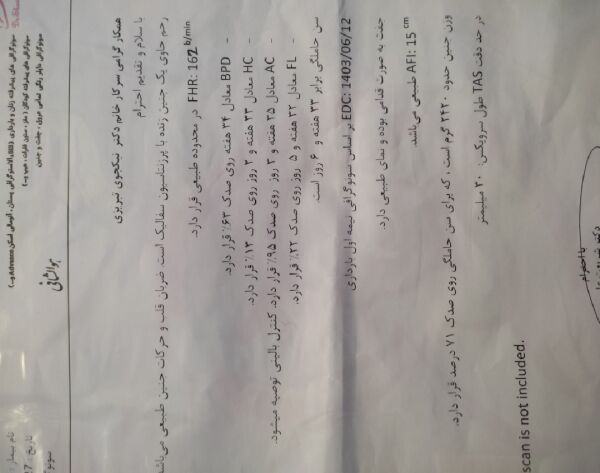 سونوگرافی های پیشرفته زنان و بارداری
سونوگرافی داپلر رنگی تمامی عروق ، جفت و جنین
نام بیمار :
تاریخ :
هوالشافی
همکار گرامی سرکار خانم دکتر نیکجوی تبریزی
با سلام و تقدیم احترام
رحم حاوی یک جنین زنده با پرزنتاسیون سفالیک است ضربان قلب و حرکات جنین طبیعی می‌باشد
FHR: 162 b/min در محدوده طبیعی قرار دارد.
- BPD معادل ۳۴ هفته روی صدک ۶۳٪ قرار دارد.
- HC معادل ۳۳ هفته و ۳ روز روی صدک ۱۳٪ قرار دارد.
- AC معادل ۳۵ هفته و ۲ روز روی صدک ۹۵٪ قرار دارد. کنترل بالینی توصیه میشود.
- FL معادل ۳۲ هفته و ۵ روز روی صدک ۲۲٪ قرار دارد.
سن حاملگی برابر ۳۳ هفته و ۶ روز است.
EDC: 1403/06/12 بر اساس سونوگرافی نیمه اول بارداری
جفت به صورت قدامی بوده و نمای طبیعی دارد.
AFI: 15 cm طبیعی می‌باشد.
وزن جنین حدود ۲۴۲۰ گرم است ، که برای سن حاملگی روی صدک ۷۱ درصد قرار دارد.
در حد دقت TAS طول سرویکس: ۳۰ میلیمتر
با احترام
scan is not included.